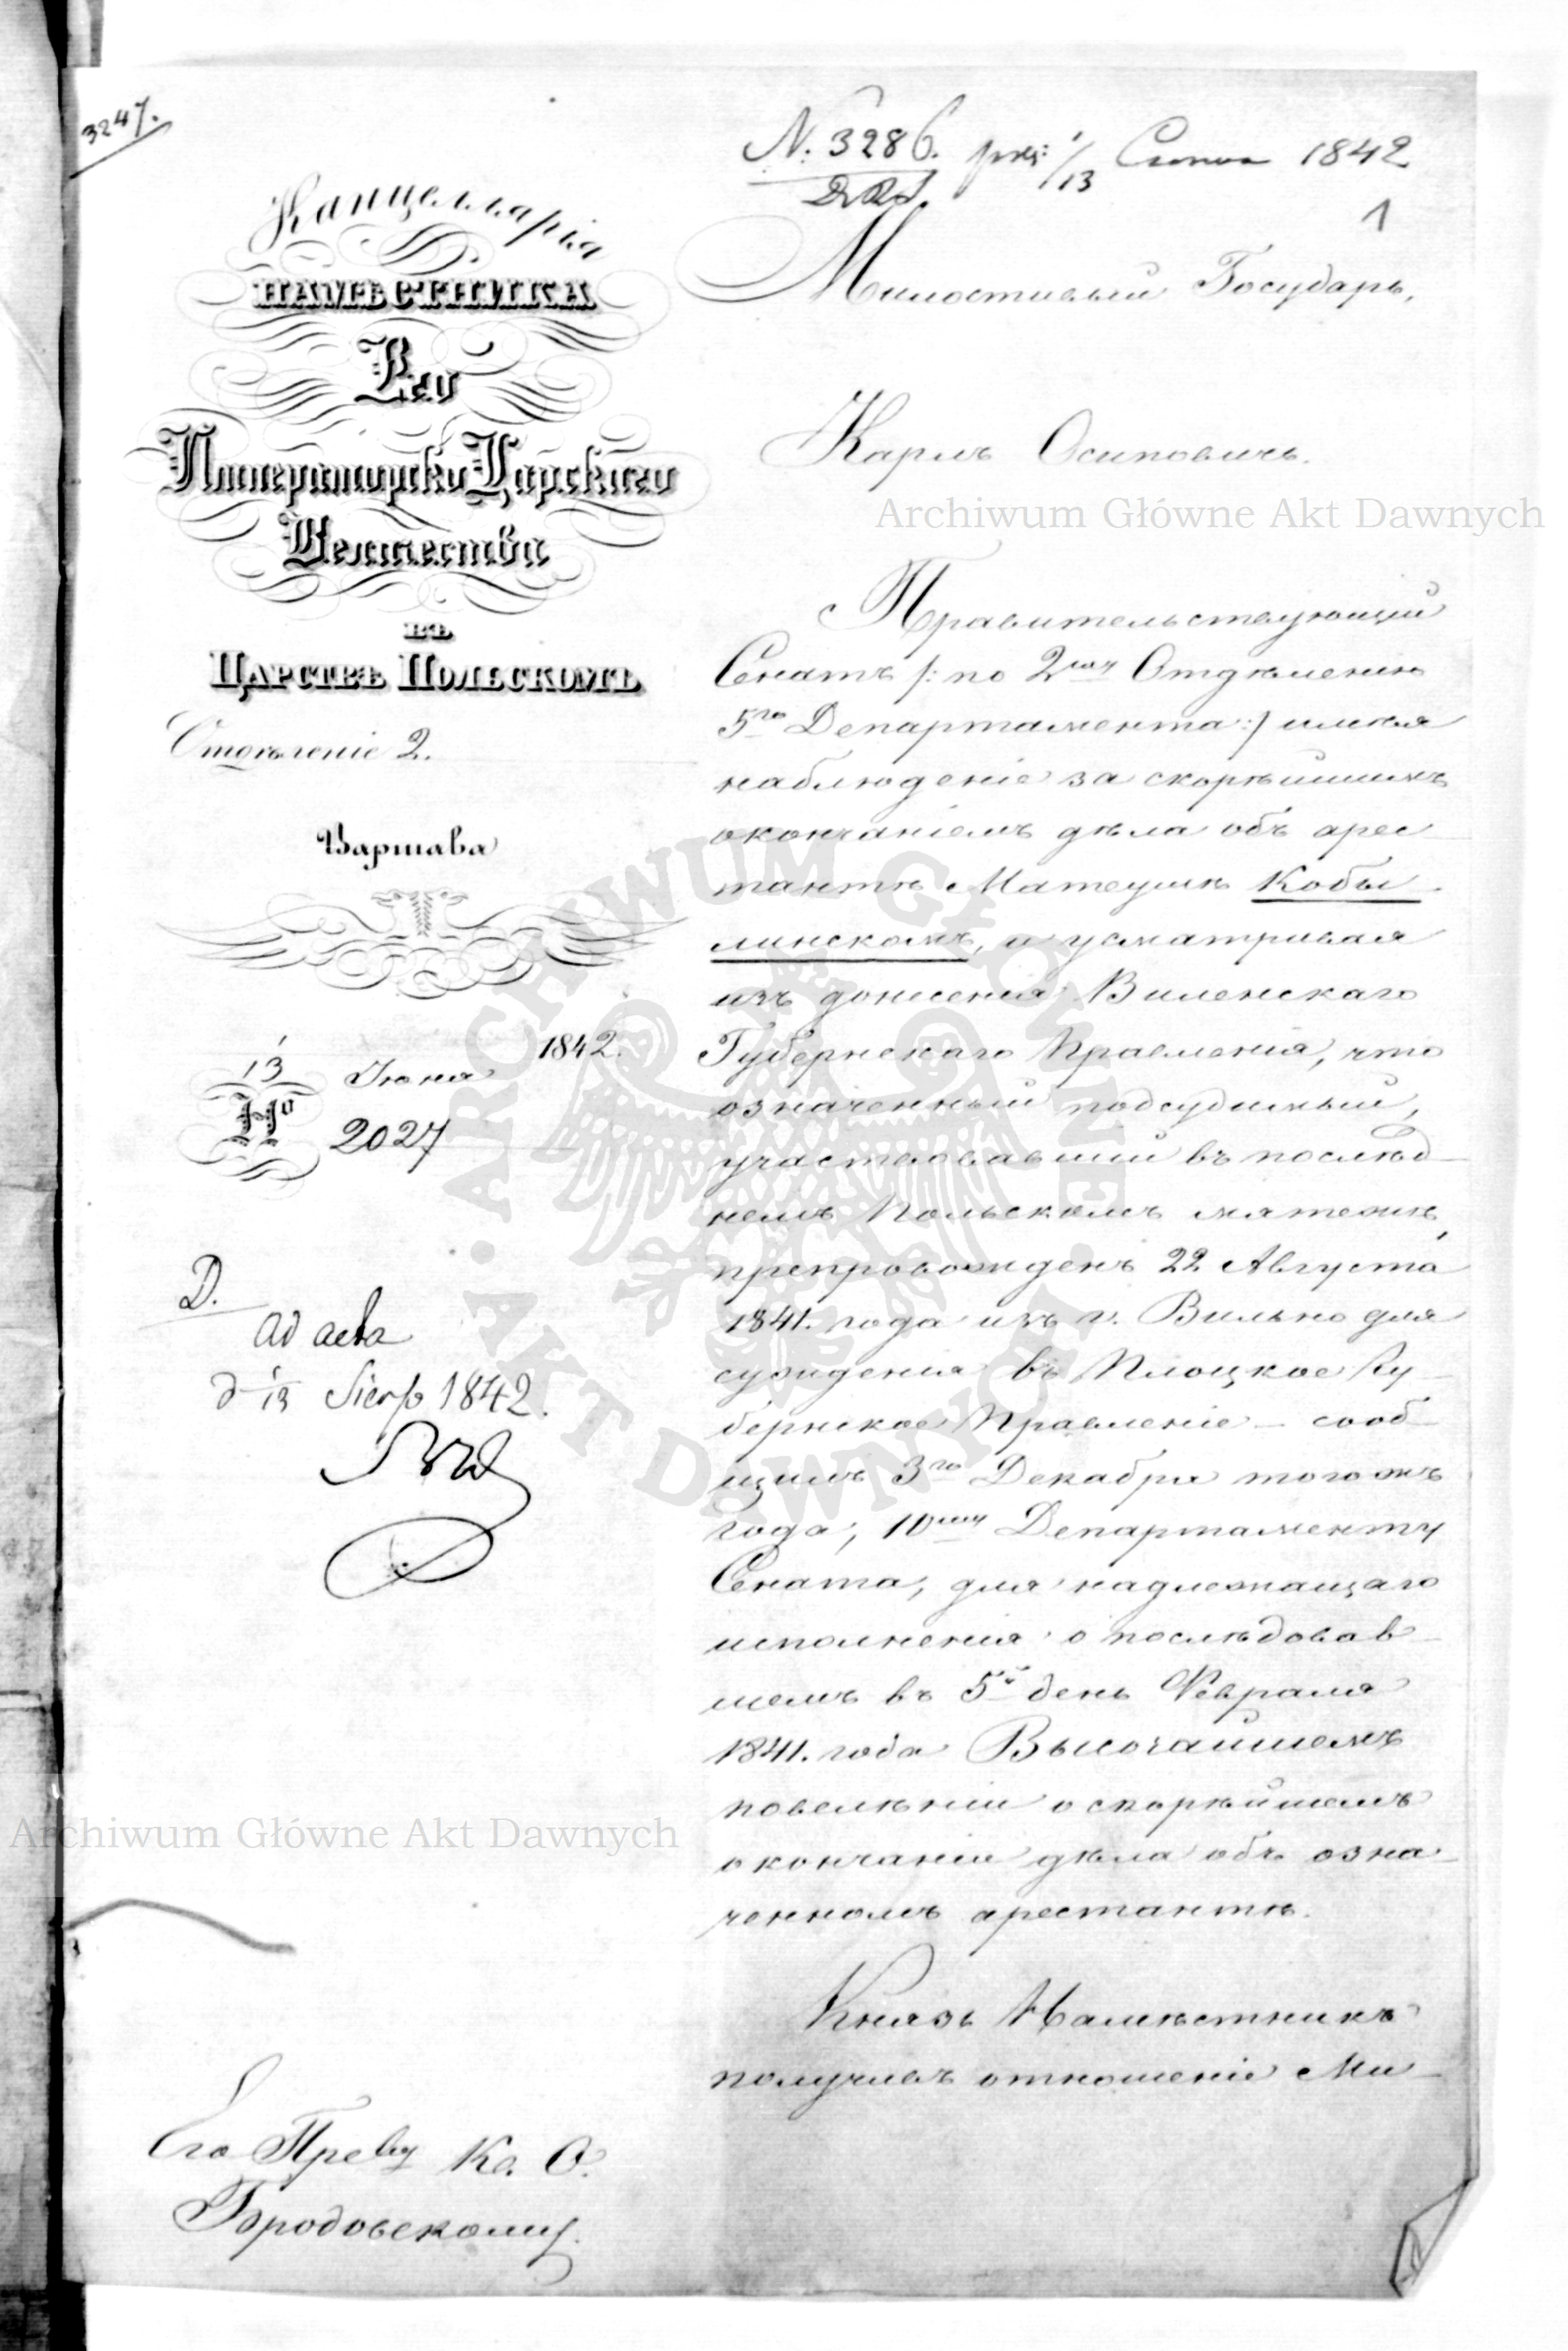 3247.
N. 3286. 1/13 1842
1
Канцеллярія
НАМѢСТНИКА
Его
Императорско Царскаго
Величества
въ
ЦАРСТВѢ ПОЛЬСКОМЪ
Отдѣленіе 2.
Варшава
1/13 Іюня 1842.
№ 2027
D.
ad acta
d 1/13 Sierp 1842.
Его Прев у К. О.
Бродовскому.
Милостивый Государь,
Карлъ Осиповичъ.
Правительствующій
Сенатъ /: по 2му Отдѣленію
5го Департамента :/ имѣя
наблюденіе за скорѣйшимъ
окончаніемъ дѣла объ арес
тантѣ Матеушѣ Кобы-
линскомъ, и усматривая
изъ донесенія Виленскаго
Губернскаго Правленія, что
означенный подсудимый,
участвовавшій въ послѣд-
немъ Польскомъ мятежѣ,
препровожденъ 22 Августа
1841. года изъ г. Вильно для
сужденія въ Плоцкое Гу-
бернское Правленіе – сооб-
щилъ 3го Декабря того жъ
года, 10му Департаменту
Сената, для надлежащаго
исполненія о послѣдовав-
шемъ въ 5й день Февраля
1841. года Высочайшемъ
повелѣніи о скорѣйшемъ
окончаніи дѣла объ озна-
ченномъ арестантѣ.
Князь Намѣстникъ
получивъ отношеніе Ми-
Archiwum Główne Akt Dawnych
Archiwum Główne Akt Dawnych
ARCHIWUM GŁÓWNE AKT DAWNYCH